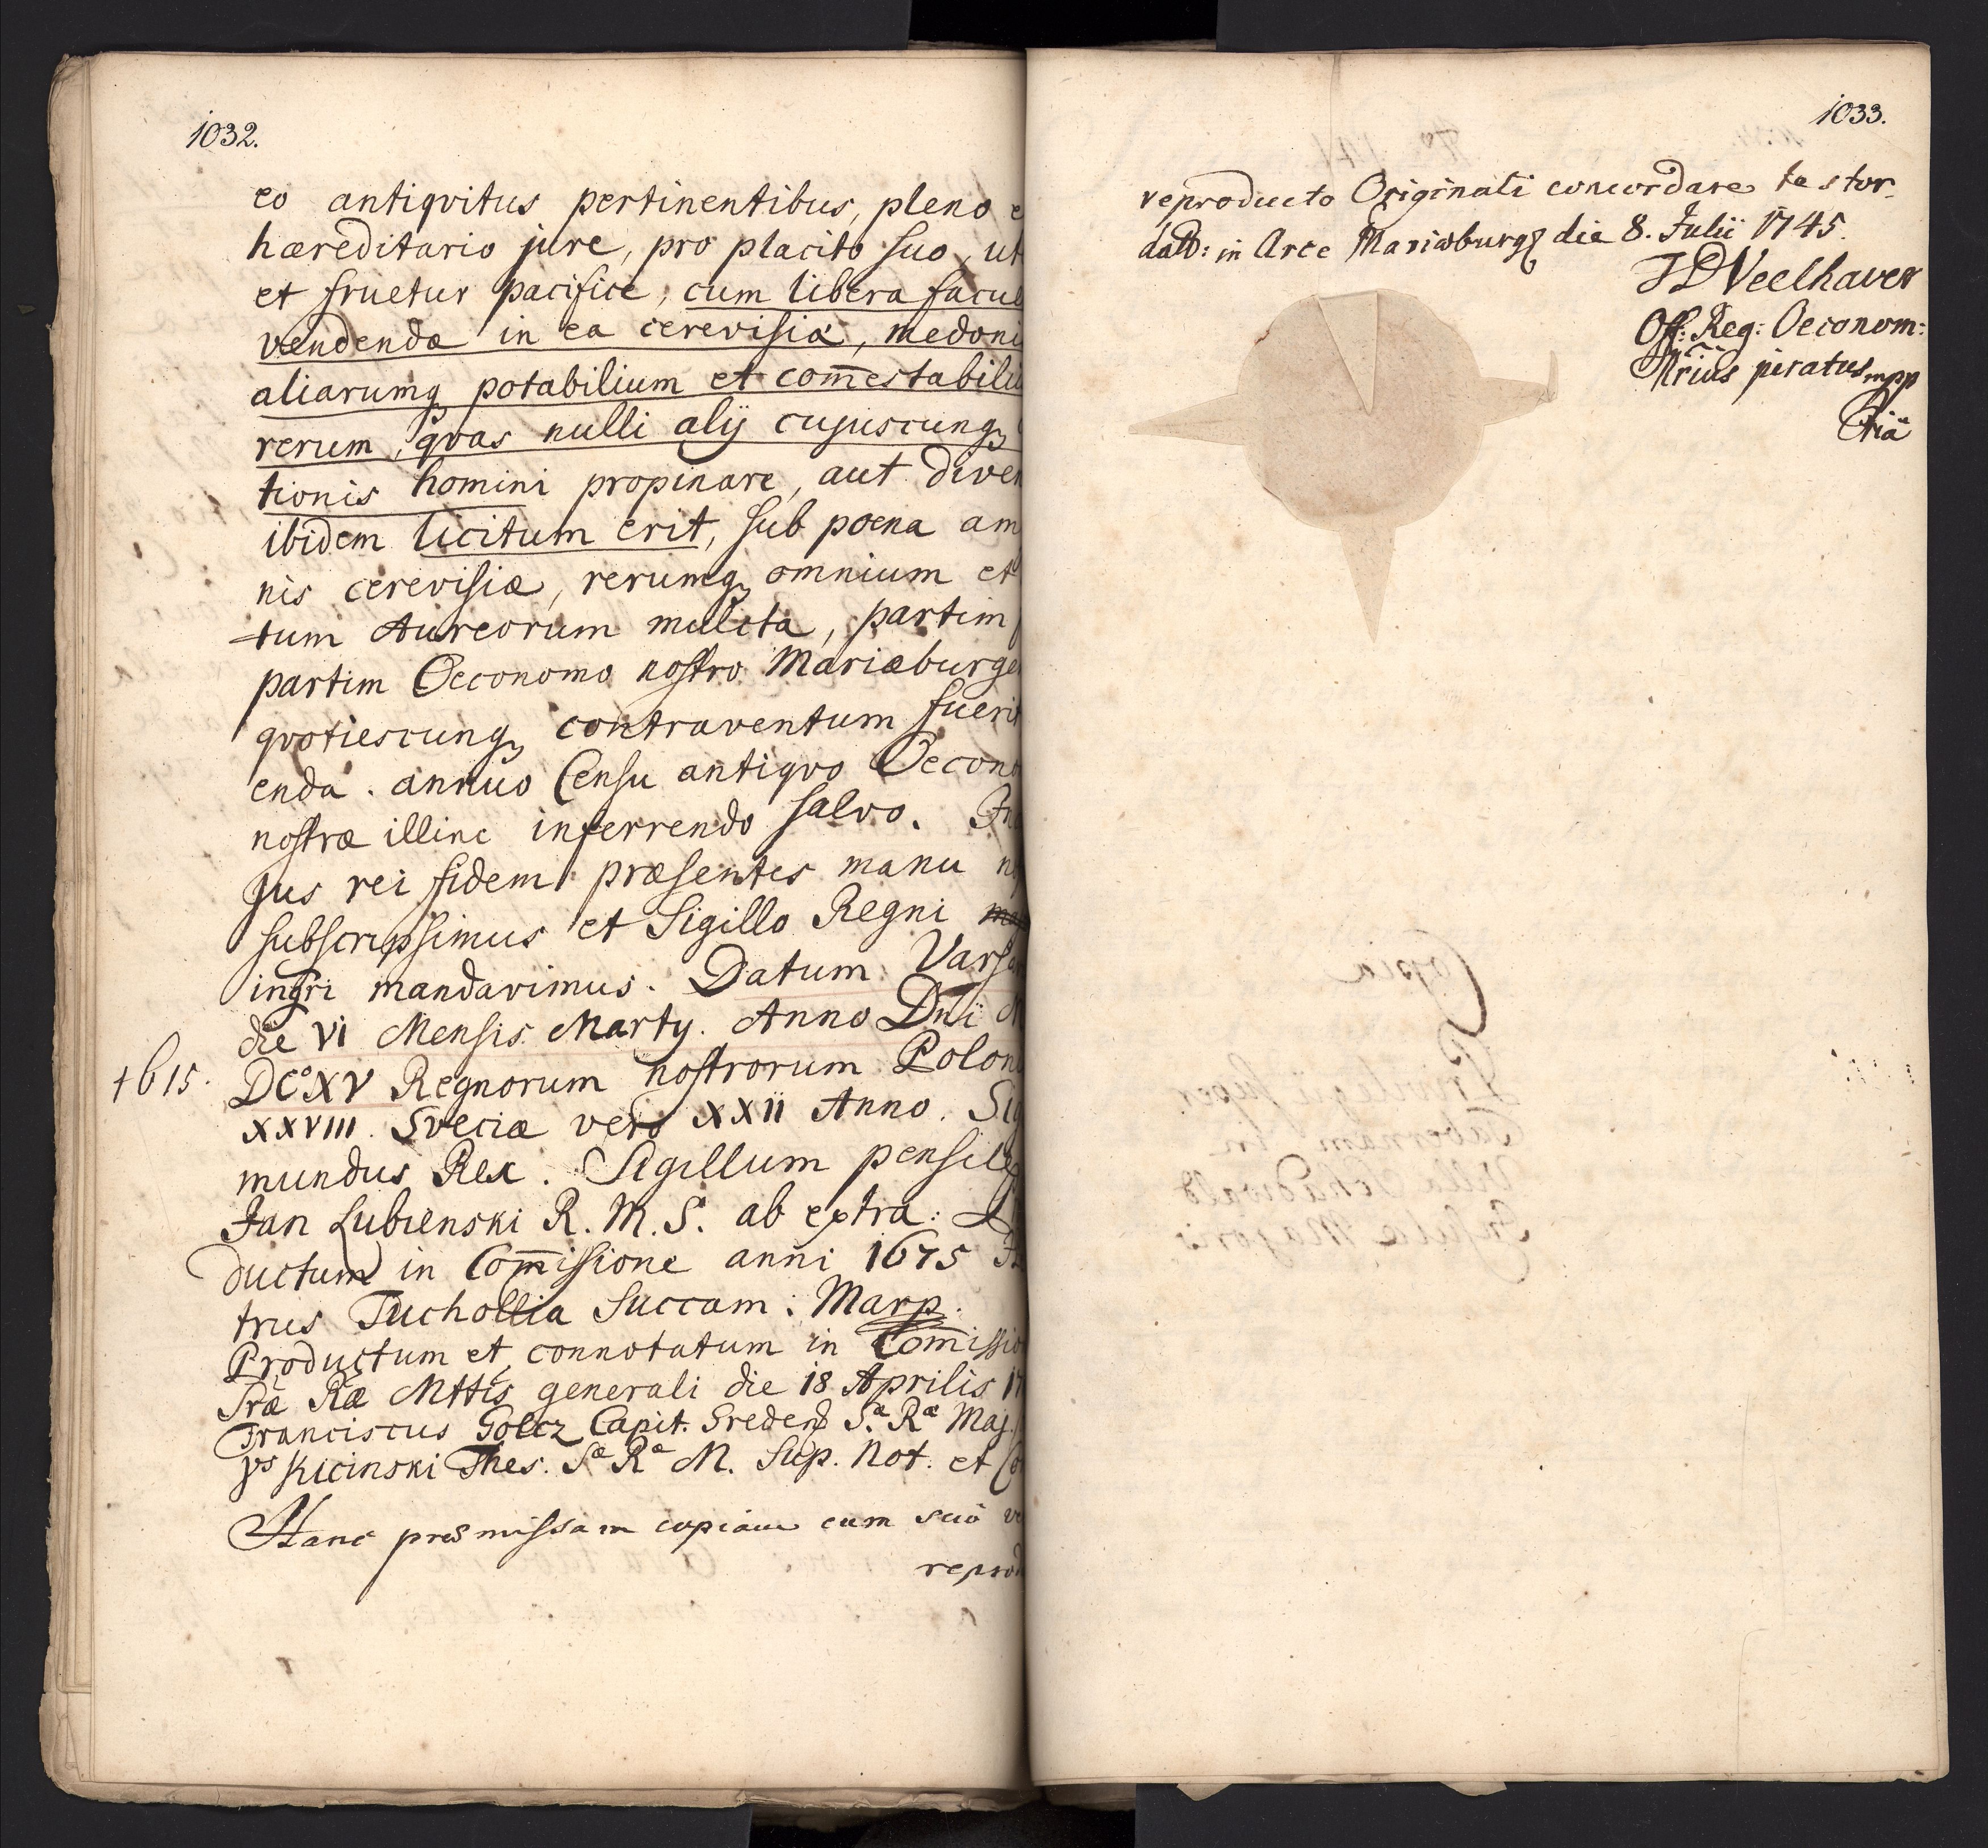 1032.
eo antiqvitus pertinentibus, pleno e
hæreditario jure, pro placito suo, ut
et fruetur pacifice, cum libera facul
vendendæ in ea cerevisiæ, medoni
aliarumq potabilium et com̄estabiliu
rerum, qvas nulli alij cujuscunq
tionis homini propinare, aut diven
ibidem licitum erit, sub poena am
nis cerevisiæ, rerumq omnium et
tum Aureorum mulcta, partim
partim Oeconomo nostro Mariæburge
qvotiescunq contraventum fueri
enda. annuo Censu antiqvo Oecono
nostræ illinc inferrendo salvo. In
jus rei fidem præsentes manu n
subscripsimus et Sigillo Regni
ingri mandavimus. Datum Varsa
die VI Mensis Martij. Anno Dni M
1615.
DC°XV Regnorum nostrorum Polon
XXVIII. Sveciæ vero XXII Anno. Sig
mundus Rex. Sigillum pensile
Jan Lubienski R. M. S. ab extra:
ductum in Com̄issione anni 1675
trus Tucholka Succam: Marp.
Productum et connotatum in Com̄issio
Sræ Ræ Mttis generali die 18 Aprilis 17
Franciscus Golcz Capit. Sredens Sæ Ræ Maj.
Kicinski Thes. Sæ Ræ M. Sup. Not. et Co
Hanc præmissam copiam cum suo ve
reprod
1033.
reproducto Originali concordare testor
datt: in Arce Mariæburg die 8. Julii 1745.
JDVeelhaver
Off: Reg: Oeconom:
Nrius juratus mpp
Copia
Privilegii super
Tabernam in
Villa Schadwald
Insulæ Majoris